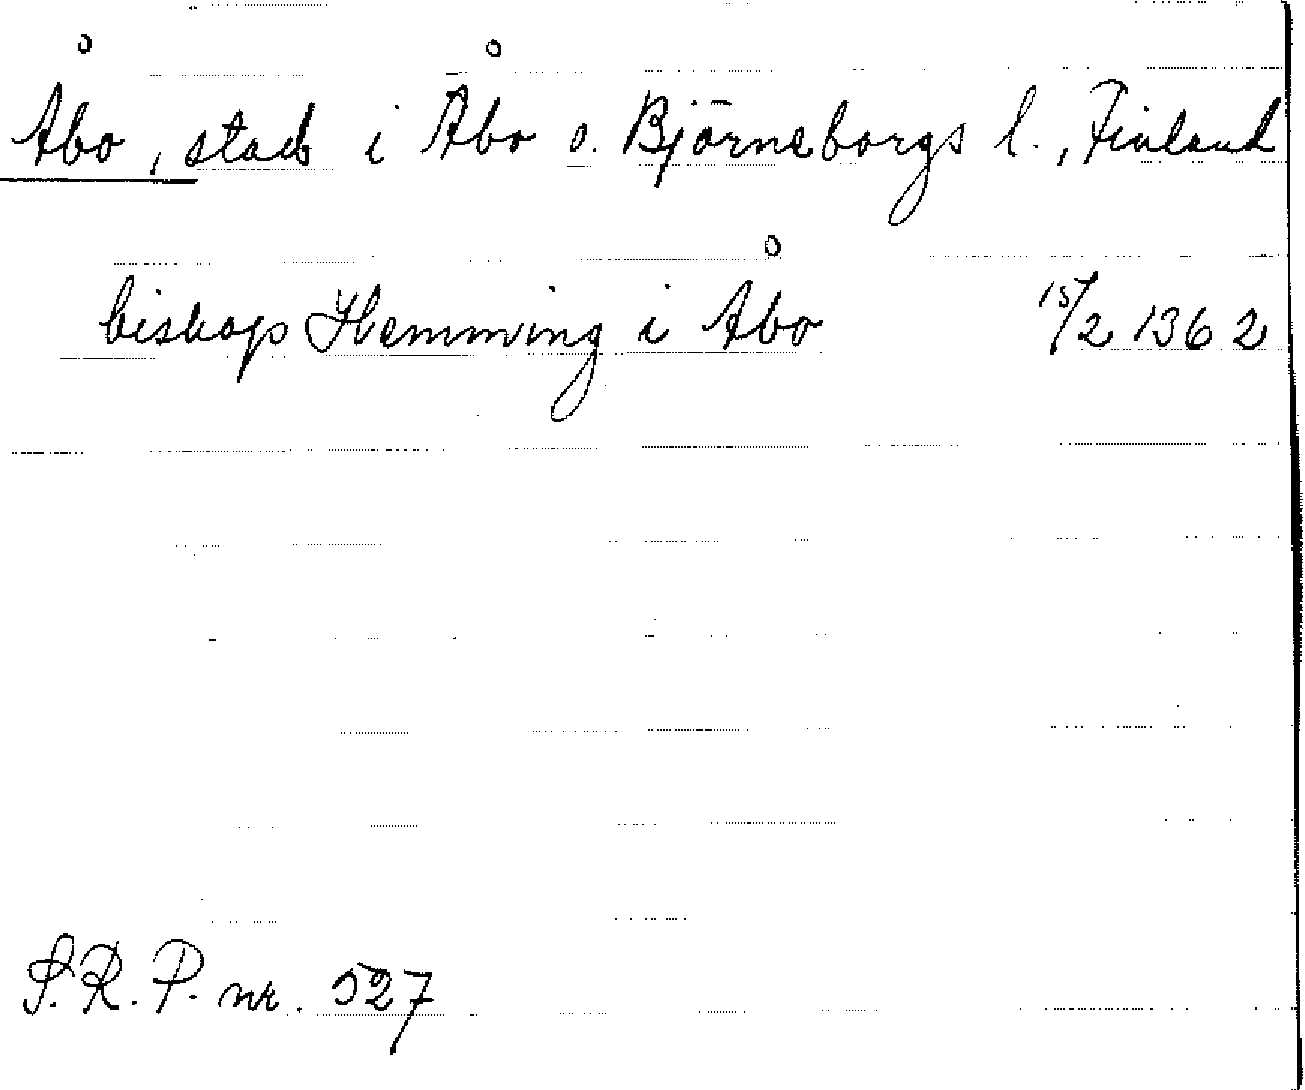 Åbo, stad i Åbo o. Björneborgs l., Finland
biskop Hemming i Åbo 15/2 1362
S.R.P. nr. 527